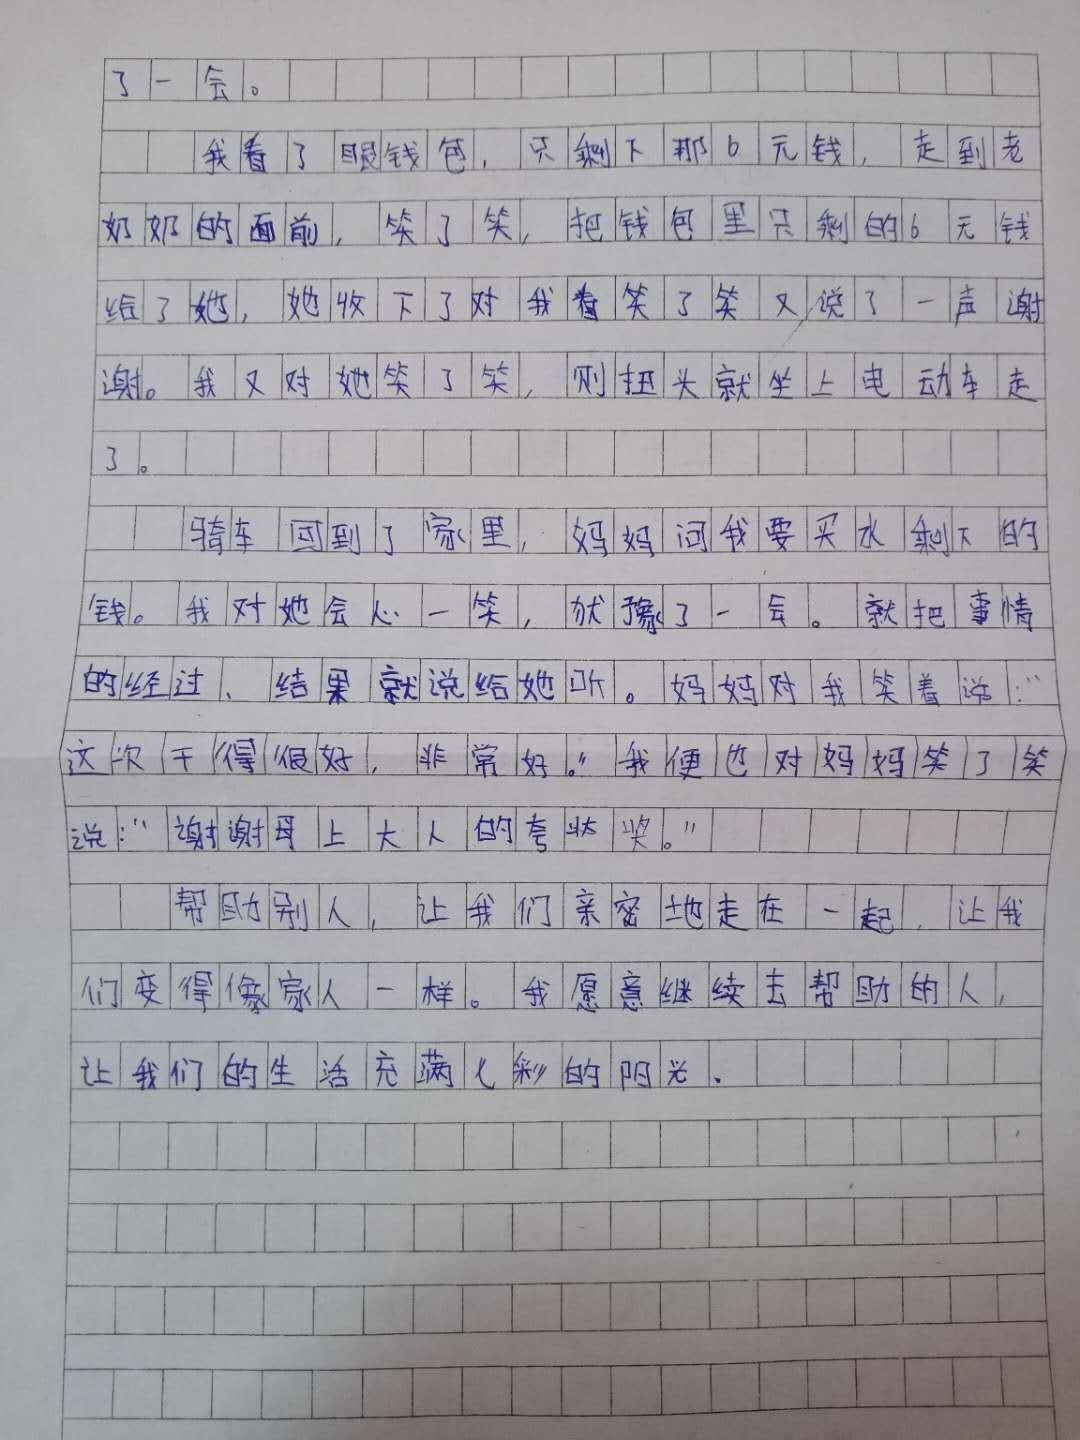 了一会。
我看了眼钱包,只剩下那6元钱,走到老
奶奶的面前,笑了笑,把钱包里只剩的6元钱
给了她,她收下了对我着笑了笑又说了一声谢
谢。我又对她笑了笑,则扭头就坐上电动车走
了。
骑车回到了家里,妈妈问我要买水剩下的
钱。我对她会心一笑,犹豫了一会。就把事情
的经过、结果就说给她听。妈妈对我笑着说:“
这次干得很好,非常好。”我便也对妈妈笑了笑
说:“谢谢母上大人的夸奖。”
帮助别人,让我们亲密地走在一起,让我
们变得像家人一样。我愿意继续去帮助的人,
让我们的生活充满七彩的阳光.